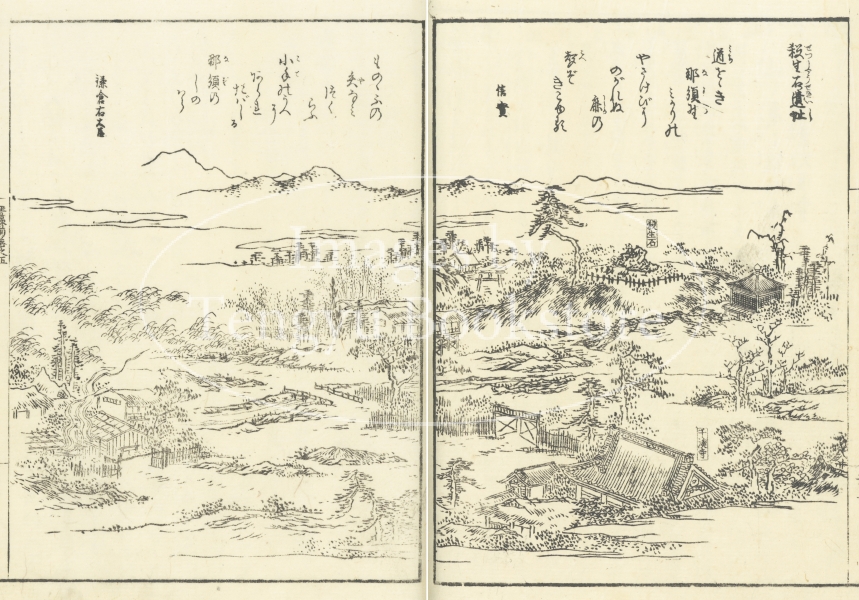 殺生石遺址
道とをき
那須野
みかりの
やさけびに
のがれぬ
鹿の
聲ぞ
きこゆる
信實
ものゝふの
矢なみ
つくろふ
小手のうへに
あられ
たばしる
那須の
しの
はら
鎌倉右大臣
殺生石
Images by
Tengyu Bookstore